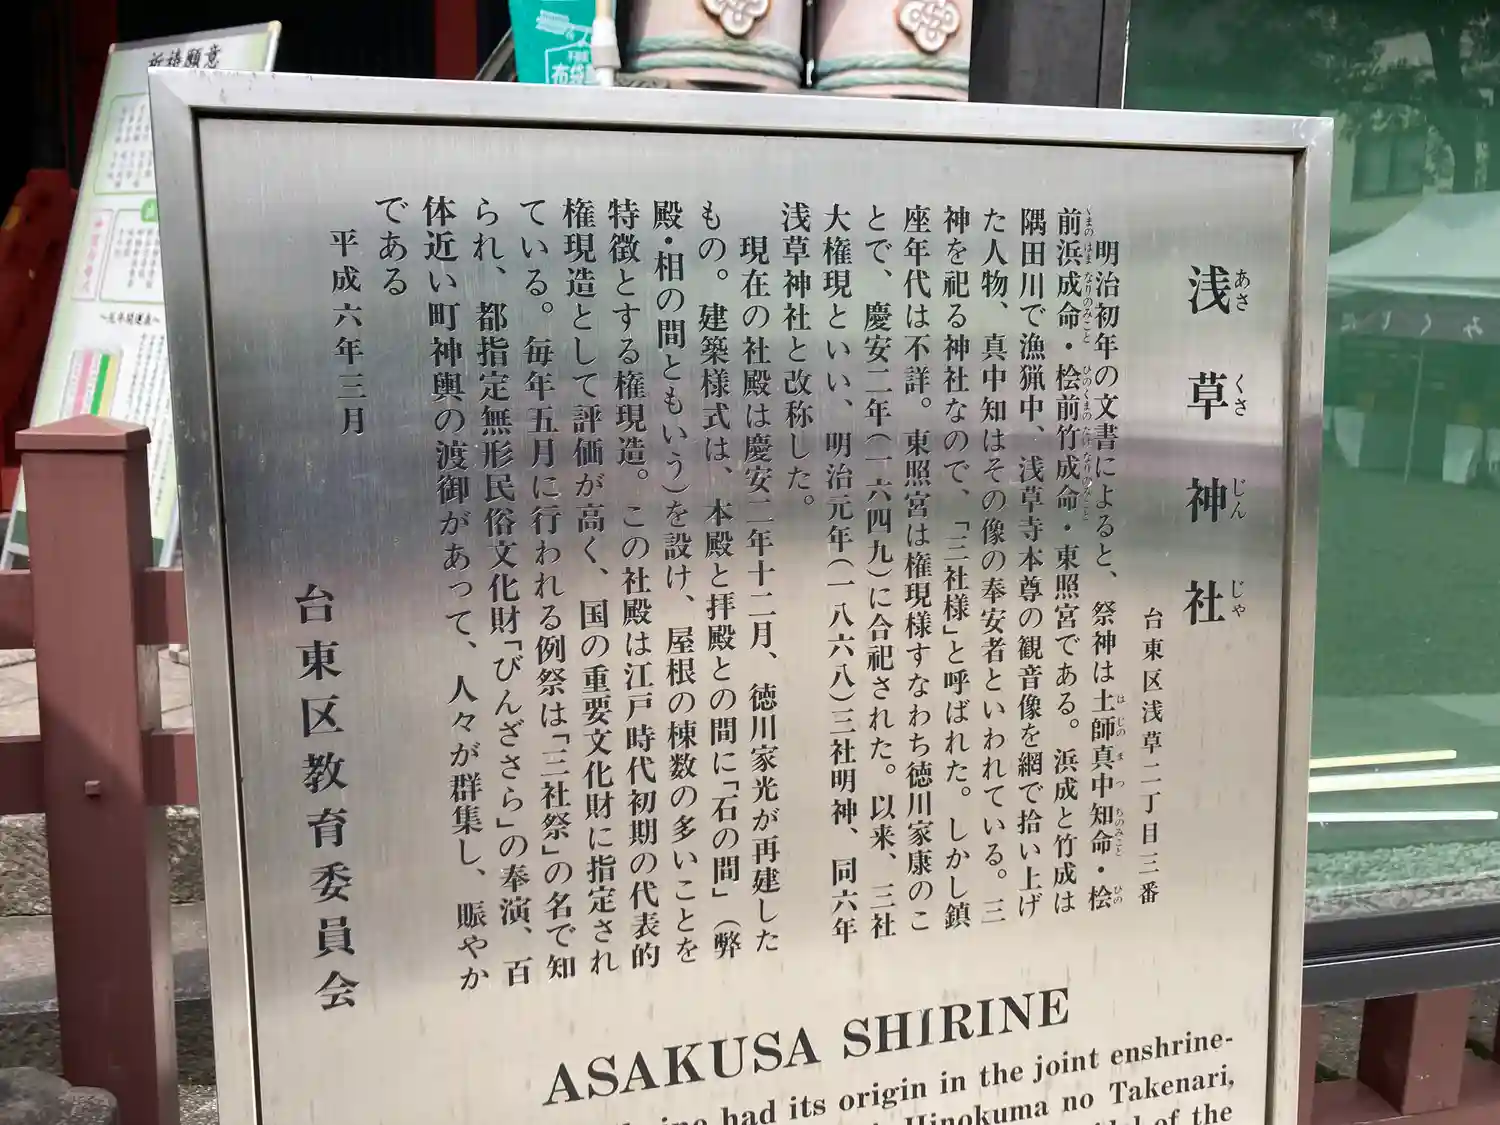 浅草神社
あさくさじんじゃ
台東区浅草二丁目三番
明治初年の文書によると、祭神は土師真中知命・桧
はじのまつちのみこと
ひの
前浜成命・桧前竹成命・東照宮である。浜成と竹成は
くまのはまなりのみこと
ひのくまのたけなりのみこと
隅田川で漁猟中、浅草寺本尊の観音像を網で拾い上げ
た人物、真中知はその像の奉安者といわれている。三
神を祀る神社なので、「三社様」と呼ばれた。しかし鎮
座年代は不詳。東照宮は権現様すなわち徳川家康のこ
とで、慶安二年(一六四九)に合祀された。以来、三社
大権現といい、明治元年(一八六八)三社明神、同六年
浅草神社と改称した。
現在の社殿は慶安二年十二月、徳川家光が再建した
もの。建築様式は、本殿と拝殿との間に「石の間」(弊
殿・相の間ともいう)を設け、屋根の棟数の多いことを
特徴とする権現造。この社殿は江戸時代初期の代表的
権現造として評価が高く、国の重要文化財に指定され
ている。毎年五月に行われる例祭は「三社祭」の名で知
られ、都指定無形民俗文化財「びんざさら」の奉演、百
体近い町神輿の渡御があって、人々が群集し、賑やか
である
平成六年三月
台東区教育委員会
ASAKUSA SHIRINE
had its origin in the joint enshrine-
Hinokuma no Takenari,
of the
祈祷願意
布袋
みくじ